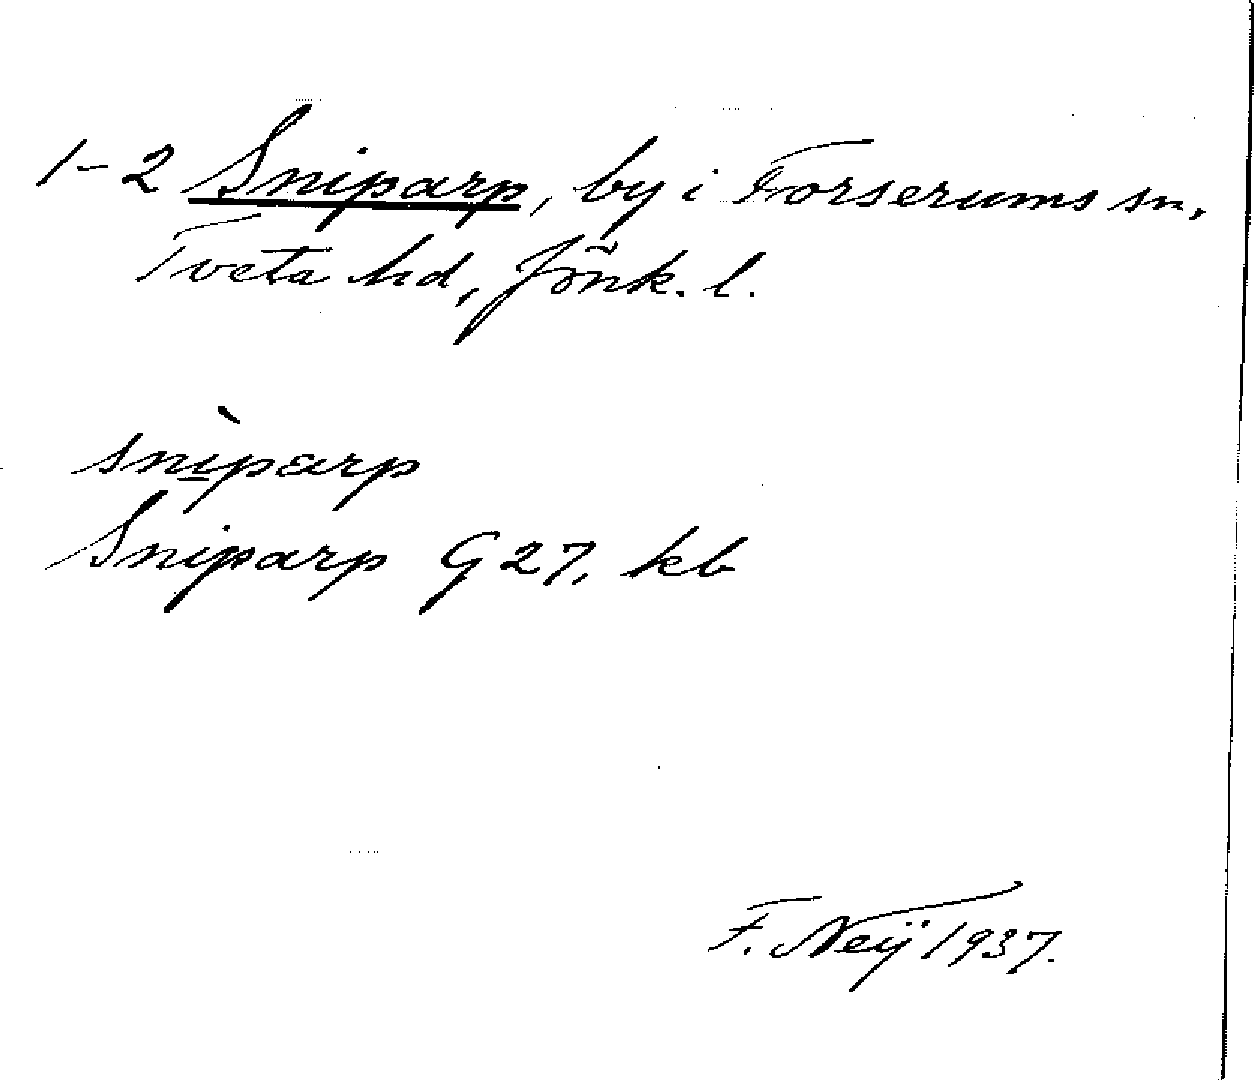 1-2 Sniparp, by i Forserums sn,
Tveta hd, Jönk. l.
snìparp
Sniparp G 27, kb
F. Neij 1937.